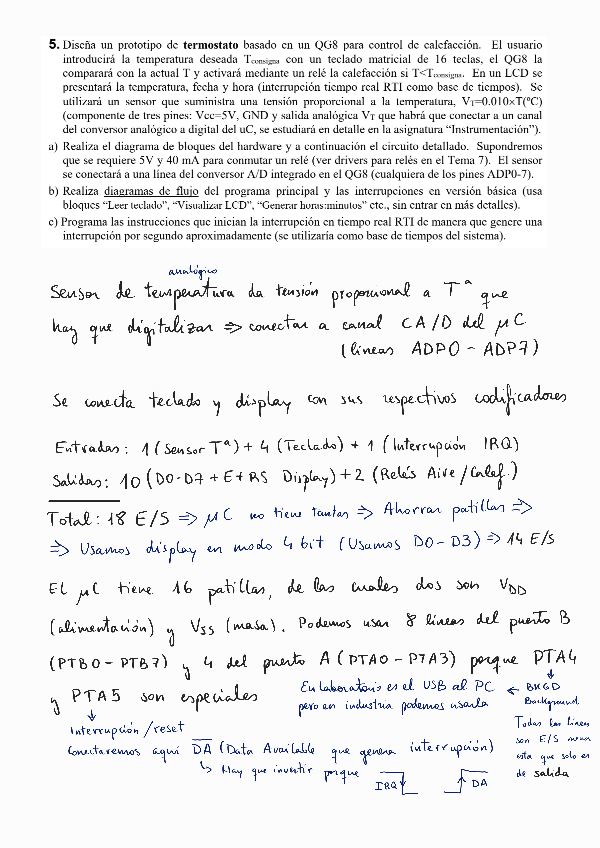 5. Diseña un prototipo de termostato basado en un QG8 para control de calefacción. El usuario
introducirá la temperatura deseada Tconsigna con un teclado matricial de 16 teclas, el QG8 la
comparará con la actual T y activará mediante un relé la calefacción si T<Tconsigna. En un LCD se
presentará la temperatura, fecha y hora (interrupción tiempo real RTI como base de tiempos). Se
utilizará un sensor que suministra una tensión proporcional a la temperatura, VT=0.010×T(ºC)
(componente de tres pines: Vcc=5V, GND y salida analógica VT que habrá que conectar a un canal
del conversor analógico a digital del uC, se estudiará en detalle en la asignatura “Instrumentación”).
a) Realiza el diagrama de bloques del hardware y a continuación el circuito detallado. Supondremos
que se requiere 5V y 40 mA para conmutar un relé (ver drivers para relés en el Tema 7). El sensor
se conectará a una línea del conversor A/D integrado en el QG8 (cualquiera de los pines ADP0-7).
b) Realiza diagramas de flujo del programa principal y las interrupciones en versión básica (usa
bloques “Leer teclado”, “Visualizar LCD”, “Generar horas:minutos” etc., sin entrar en más detalles).
c) Programa las instrucciones que inician la interrupción en tiempo real RTI de manera que genere una
interrupción por segundo aproximadamente (se utilizaría como base de tiempos del sistema).
analógico
Sensor de temperatura da tensión proporcional a Tª que
hay que digitalizar ⇒ conectar a canal CA/D del µC
(líneas ADP0 - ADP7)
Se conecta teclado y display con sus respectivos codificadores
Entradas: 1 (Sensor Tª) + 4 (Teclado) + 1 (Interrupción IRQ)
Salidas: 10 (D0-D7 + E + RS Display) + 2 (Relés Aire/Calef.)
Total: 18 E/S ⇒ µC no tiene tantas ⇒ Ahorrar patillas ⇒
⇒ Usamos display en modo 4 bit (Usamos D0-D3) ⇒ 14 E/S
El µC tiene 16 patillas, de las cuales dos son VDD
(alimentación) y VSS (masa). Podemos usar 8 líneas del puerto B
(PTB0 - PTB7) y 4 del puerto A (PTA0 - PTA3) porque PTA4
y PTA5 son especiales
En laboratorio es el USB al PC ← BKGD
pero en industria podemos usarla Background
Interrupción/reset
Todas las líneas
son E/S menos
esta que solo es
de salida
Conectaremos aquí DA (Data Available que genera interrupción)
↳ Hay que invertir porque IRQ DA